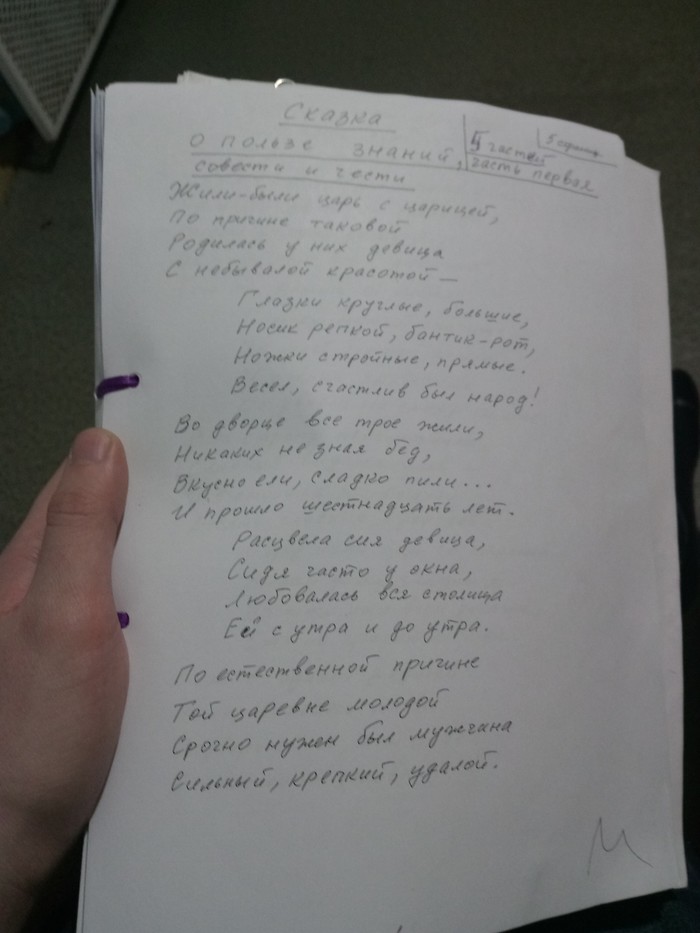 Сказка
о пользе знаний,
совести и чести
4 частей
часть первая
Жили-были царь с царицей,
По причине таковой
Родилась у них девица
С небывалой красотой —
Глазки круглые, большие,
Носик репкой, бантик-рот,
Ножки стройные, прямые.
Весел, счастлив был народ!
Во дворце все трое жили,
Никаких не зная бед,
Вкусно ели, сладко пили...
И прошло шестнадцать лет.
Расцвела сия девица,
Сидя часто у окна,
Любовалась вся столица
Ей с утра и до утра.
По естественной причине
Той царевне молодой
Срочно нужен был мужчина
Сильный, крепкий, удалой.